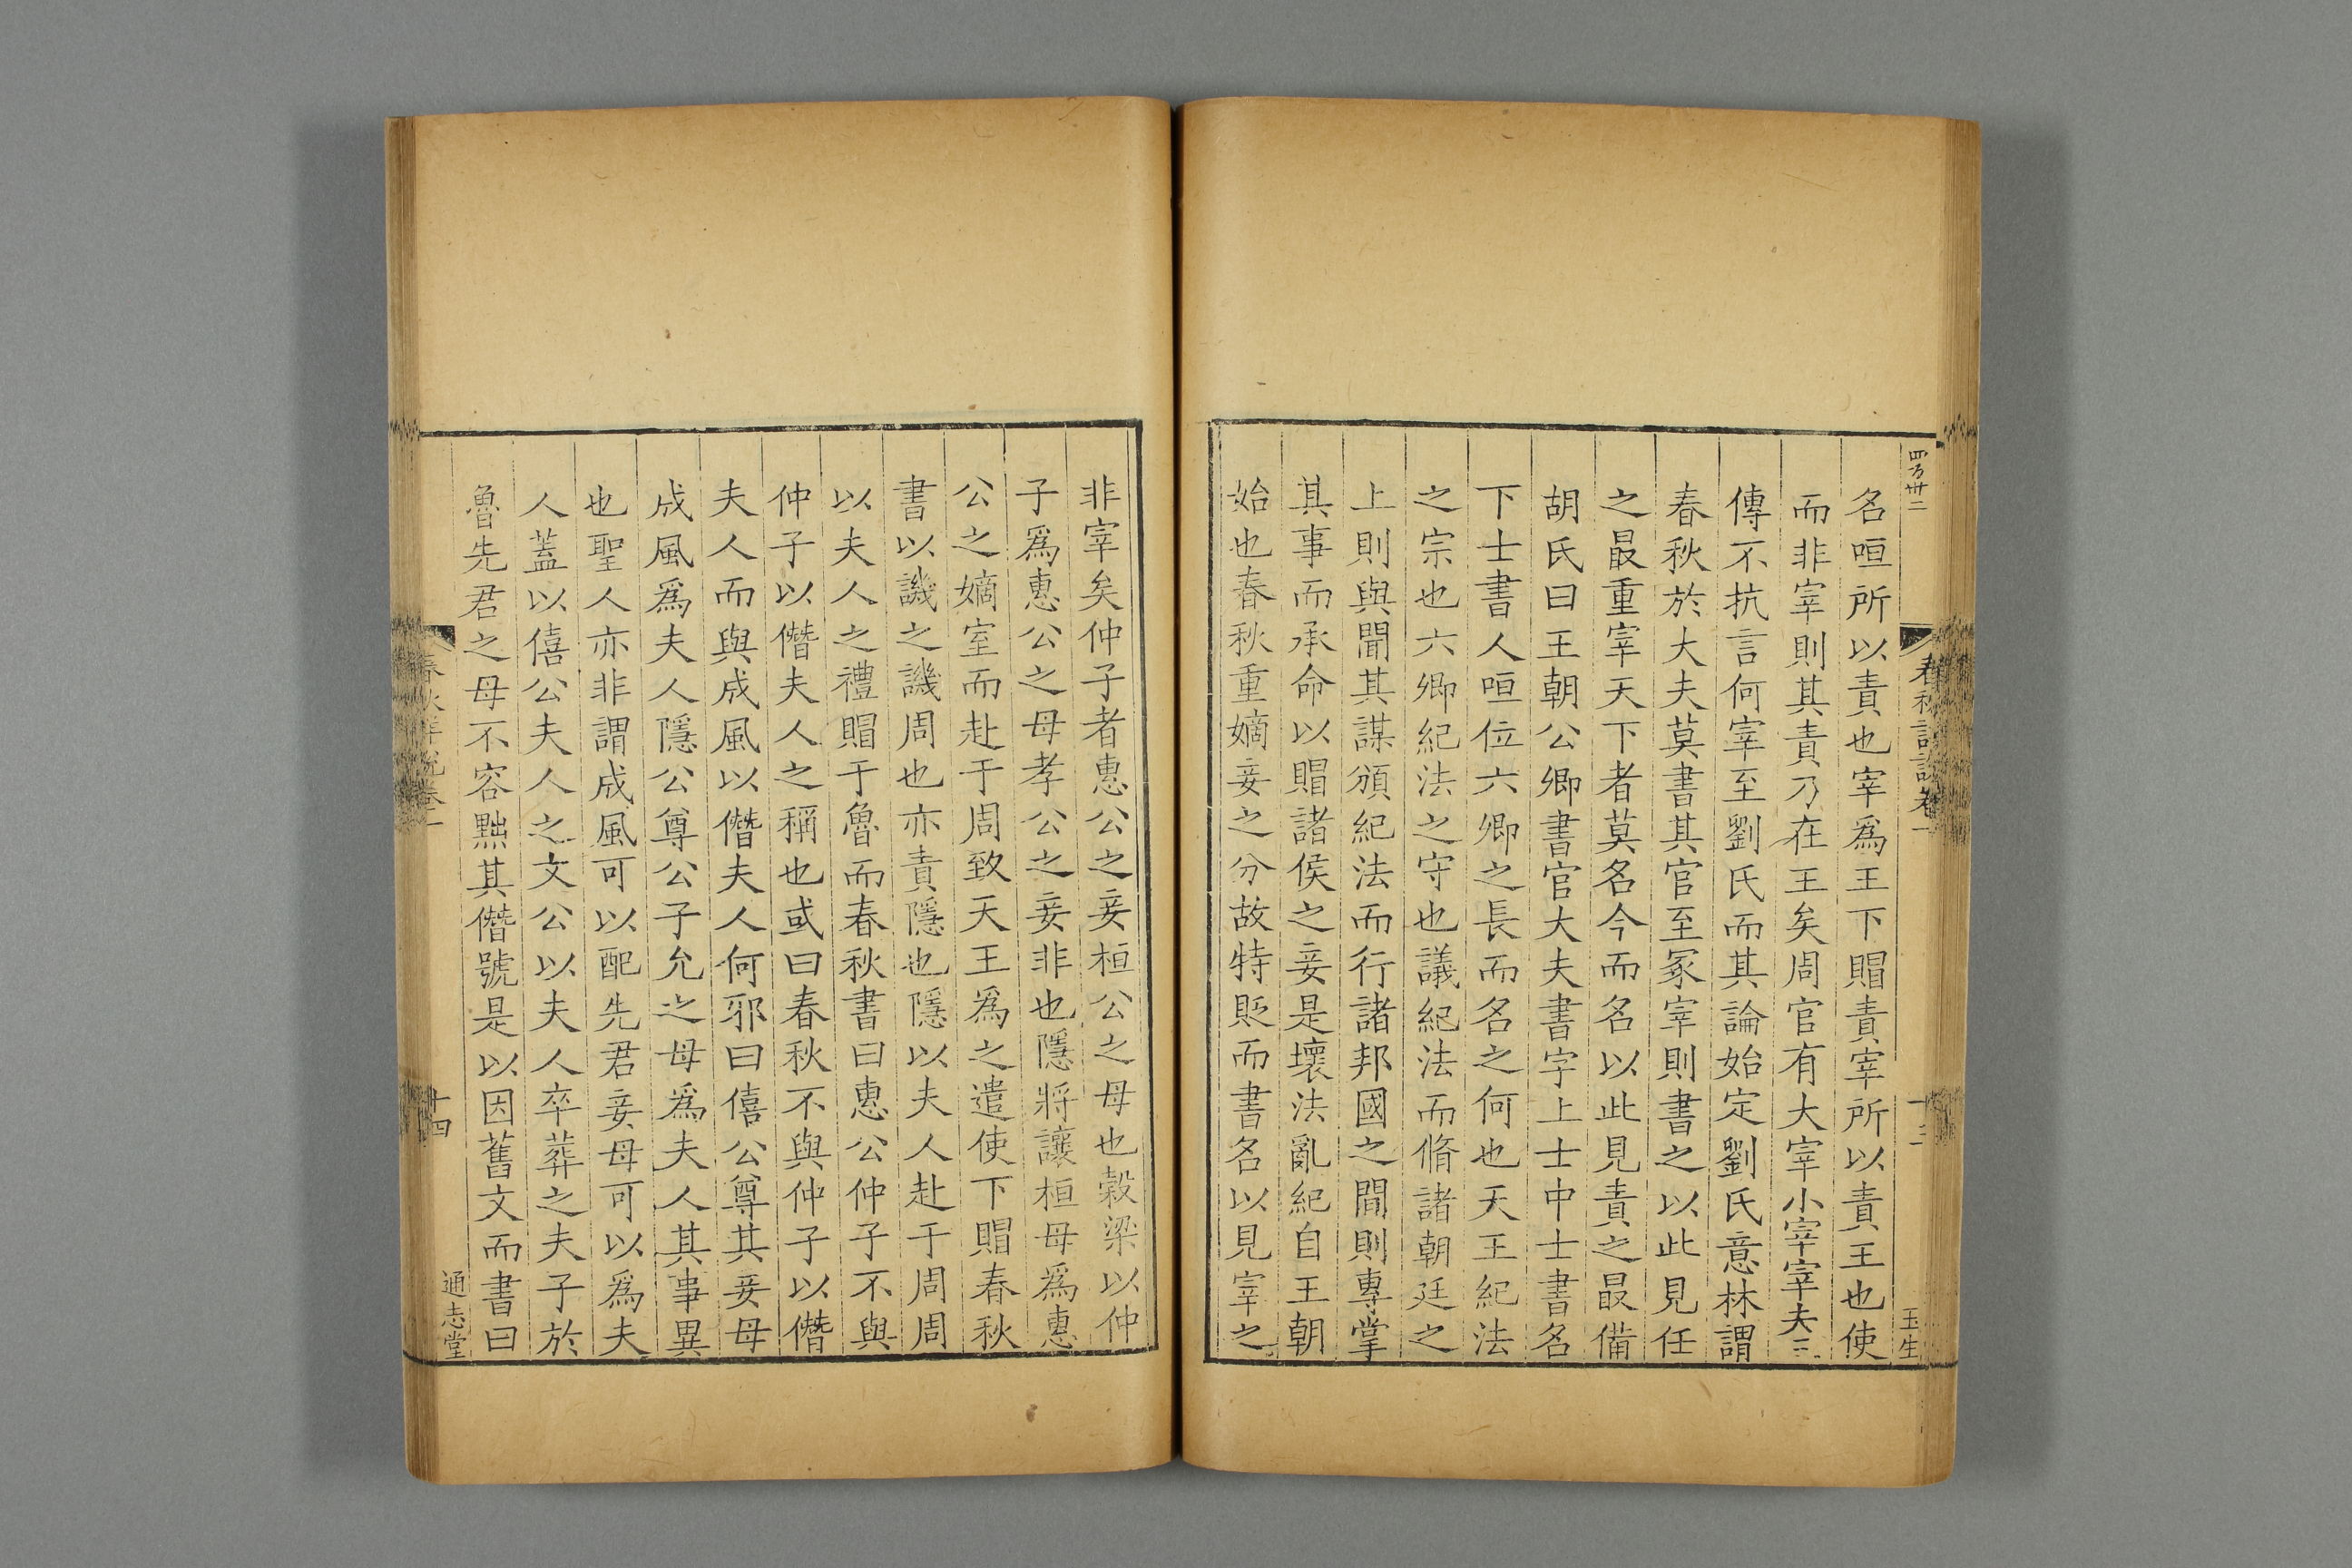 名咺所以責也宰爲王下賵責宰所以責王也使
而非宰則其責乃在王矣周官有大宰小宰宰夫三
傳不抗言何宰至劉氏而其論始定劉氏意林謂
春秋於大夫莫書其官至冢宰則書之以此見任
之最重宰天下者莫名今而名以此見責之最備
胡氏曰王朝公卿書官大夫書字上士中士書名
下士書人咺位六卿之長而名之何也天王紀法
之宗也六卿紀法之守也議紀法而脩諸朝廷之
上則與聞其謀頒紀法而行諸邦國之間則專掌
其事而承命以賵諸侯之妾是壞法亂紀自王朝
始也春秋重嫡妾之分故特貶而書名以見宰之
非宰矣仲子者惠公之妾桓公之母也榖梁以仲
子爲惠公之母孝公之妾非也隱將讓桓母爲惠
公之嫡室而赴于周致天王爲之遣使下賵春秋
書以譏之譏周也亦責隱也隱以夫人赴于周周
以夫人之禮賵于魯而春秋書曰惠公仲子不與
仲子以僭夫人之稱也或曰春秋不與仲子以僭
夫人而與成風以僭夫人何邪曰僖公尊其妾母
成風爲夫人隱公尊公子允之母爲夫人其事異
也聖人亦非謂成風可以配先君妾母可以爲夫
人蓋以僖公夫人之文公以夫人卒葬之夫子於
魯先君之母不容黜其僭號是以因舊文而書曰
十四
通志堂